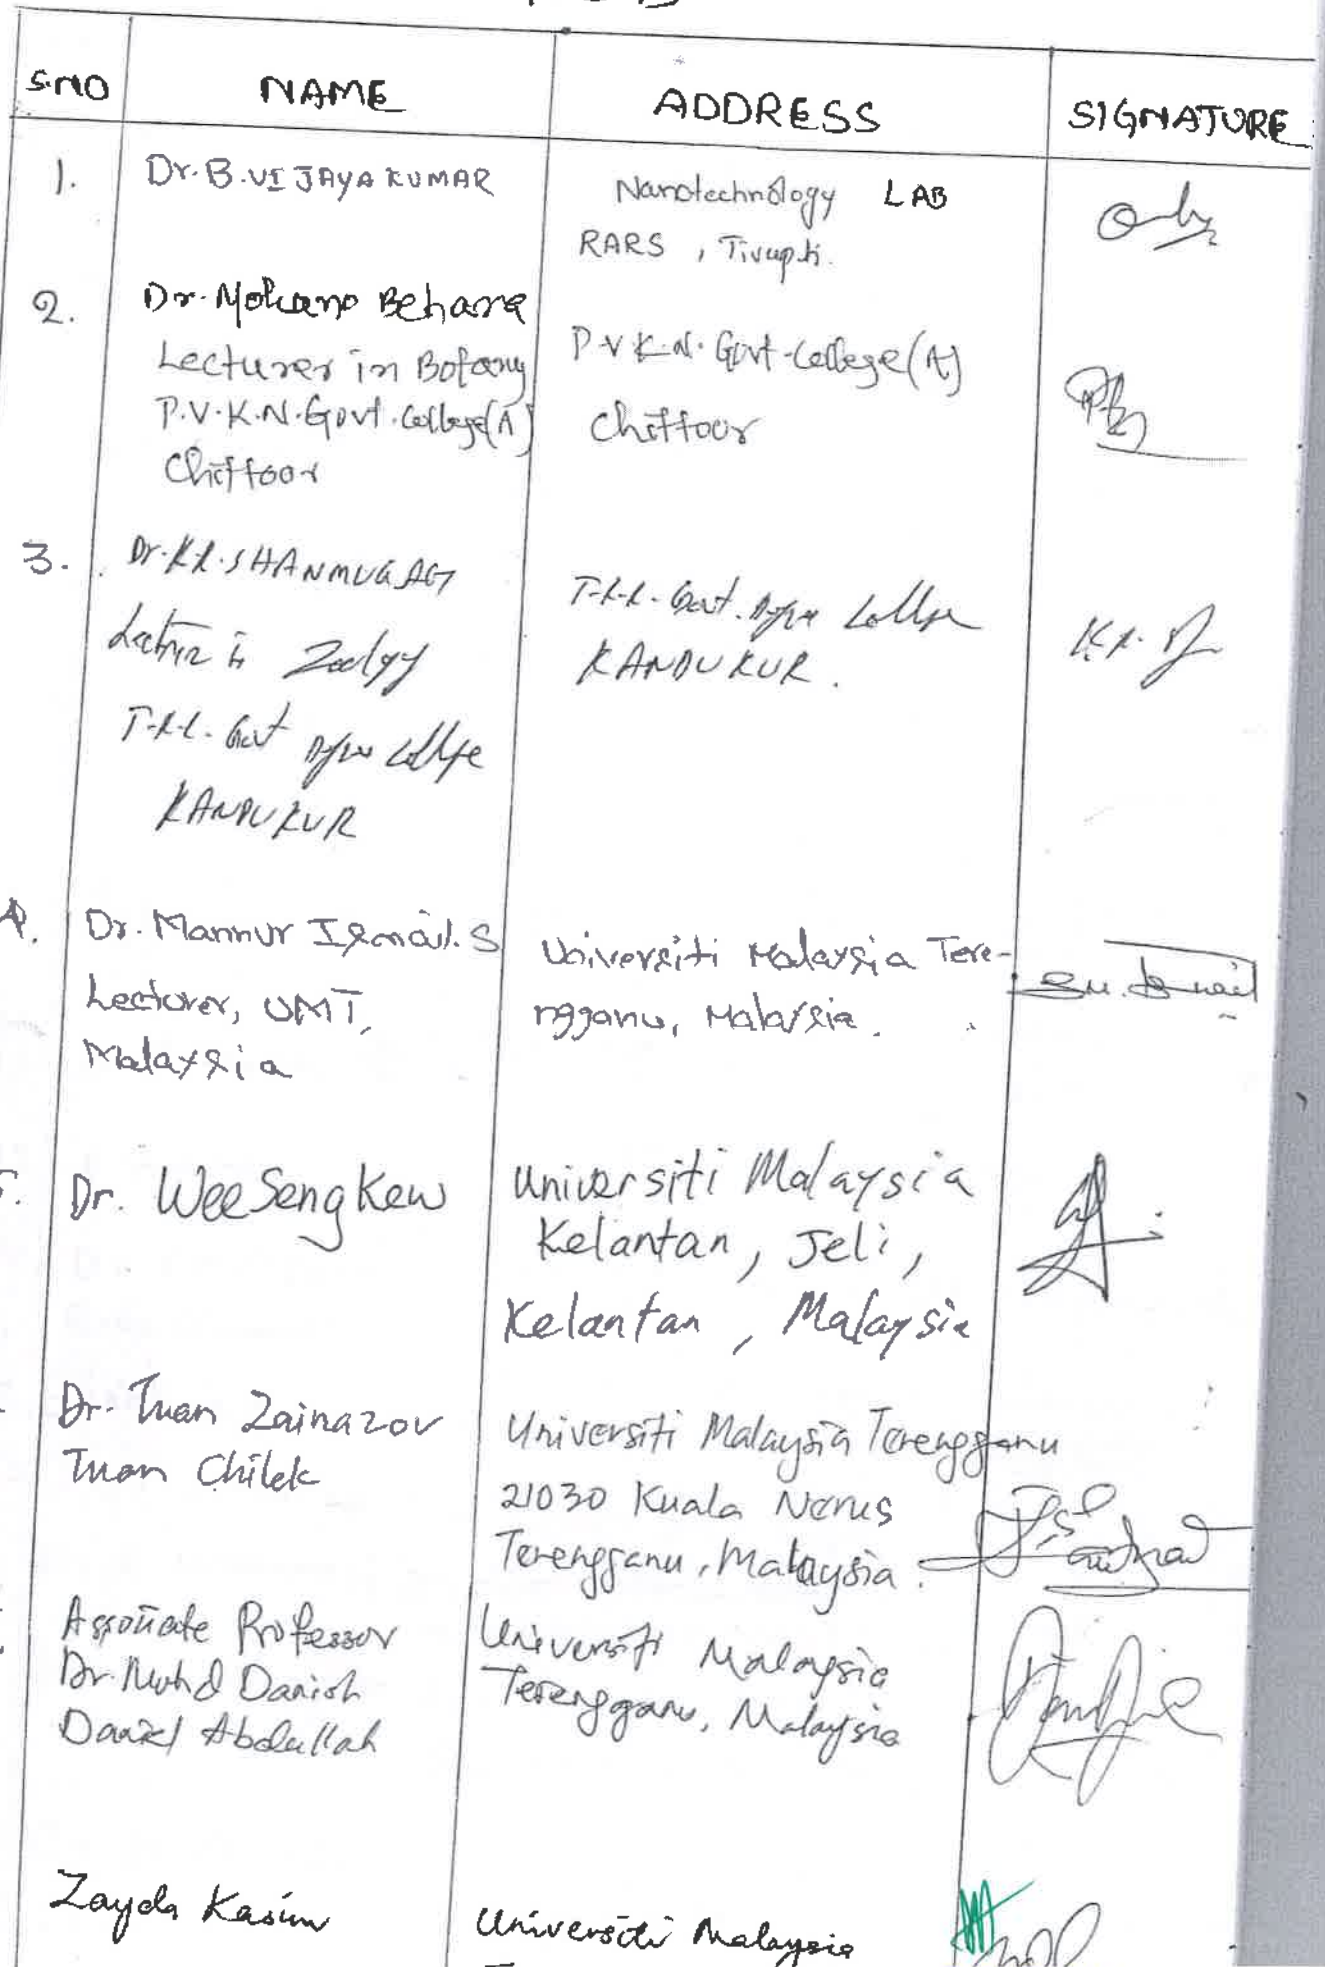 S.NO NAME ADDRESS SIGNATURE
1. Dr. B. VIJAYA KUMAR
Nanotechnology LAB
RARS, Tirupati.
2. Dr. Mohano Behara
Lecturer in Botany
P.V.K.N. Govt. College(A)
Chittoor
P.V.K.N. Govt. College(A)
Chittoor
3. Dr. K.R. SHANMUGAM
Lecturer in Zoology
T.R.R. Govt Degree College
KANDUKUR
T.R.R. Govt. Degree College
KANDUKUR.
K.R.
4. Dr. Mannur Ismail. S
Lecturer, UMT,
Malaysia
Universiti Malaysia Tere-
ngganu, Malaysia.
S.M. Ismail
5. Dr. Wee Seng Kew
Universiti Malaysia
Kelantan, Jeli,
Kelantan, Malaysia
Dr. Tuan Zainazor
Tuan Chilek
Universiti Malaysia Terengganu
21030 Kuala Nerus
Terengganu, Malaysia.
Associate Professor
Dr. Muhd Danish
Daniel Abdullah
Universiti Malaysia
Terengganu, Malaysia
Zayda Kasim
Universiti Malaysia